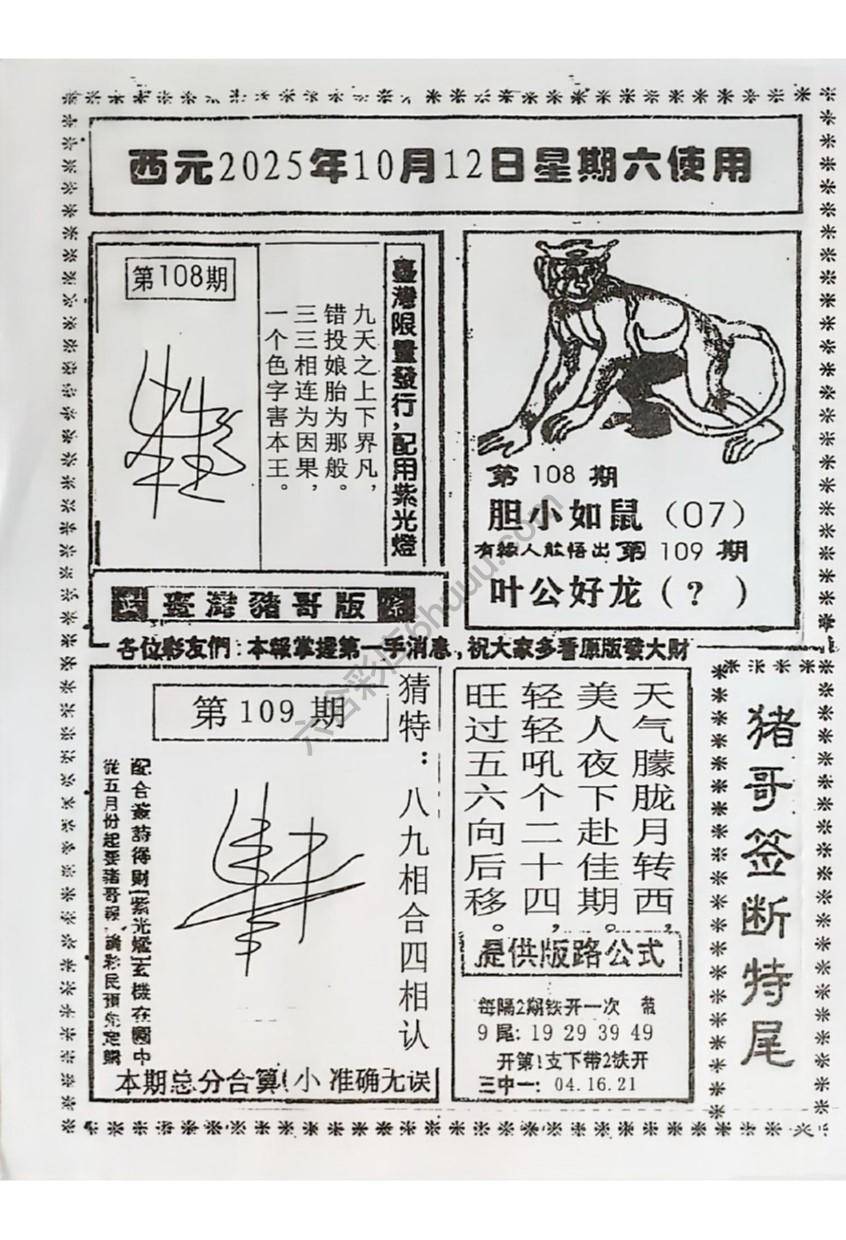 西元2025年10月12日星期六使用
第108期
臺灣限量發行,配用紫光燈
九天之上下界凡,
错投娘胎为那般。
三三相连为因果,
一个色字害本王。
臺灣豬哥版
第 108 期
胆小如鼠（07）
有緣人能悟出 第 109 期
叶公好龙（?）
各位彩友們:本報掌握第一手消息,祝大家多看原版發大財
第 109 期
猜特：八九相合四相认
配合簽詩得財[紫光燈]玄機在圖中
從五月份起
本期总分合算小 准确无误
天气朦胧月转西,
美人夜下赴佳期。
轻轻吼个二十四,
旺过五六向后移。
提供版路公式
每隔2期铁开一次
9尾: 19 29 39 49
开第1支下带2铁开
三中一: 04.16.21
猪哥签断特尾
六合彩活6huuu.com